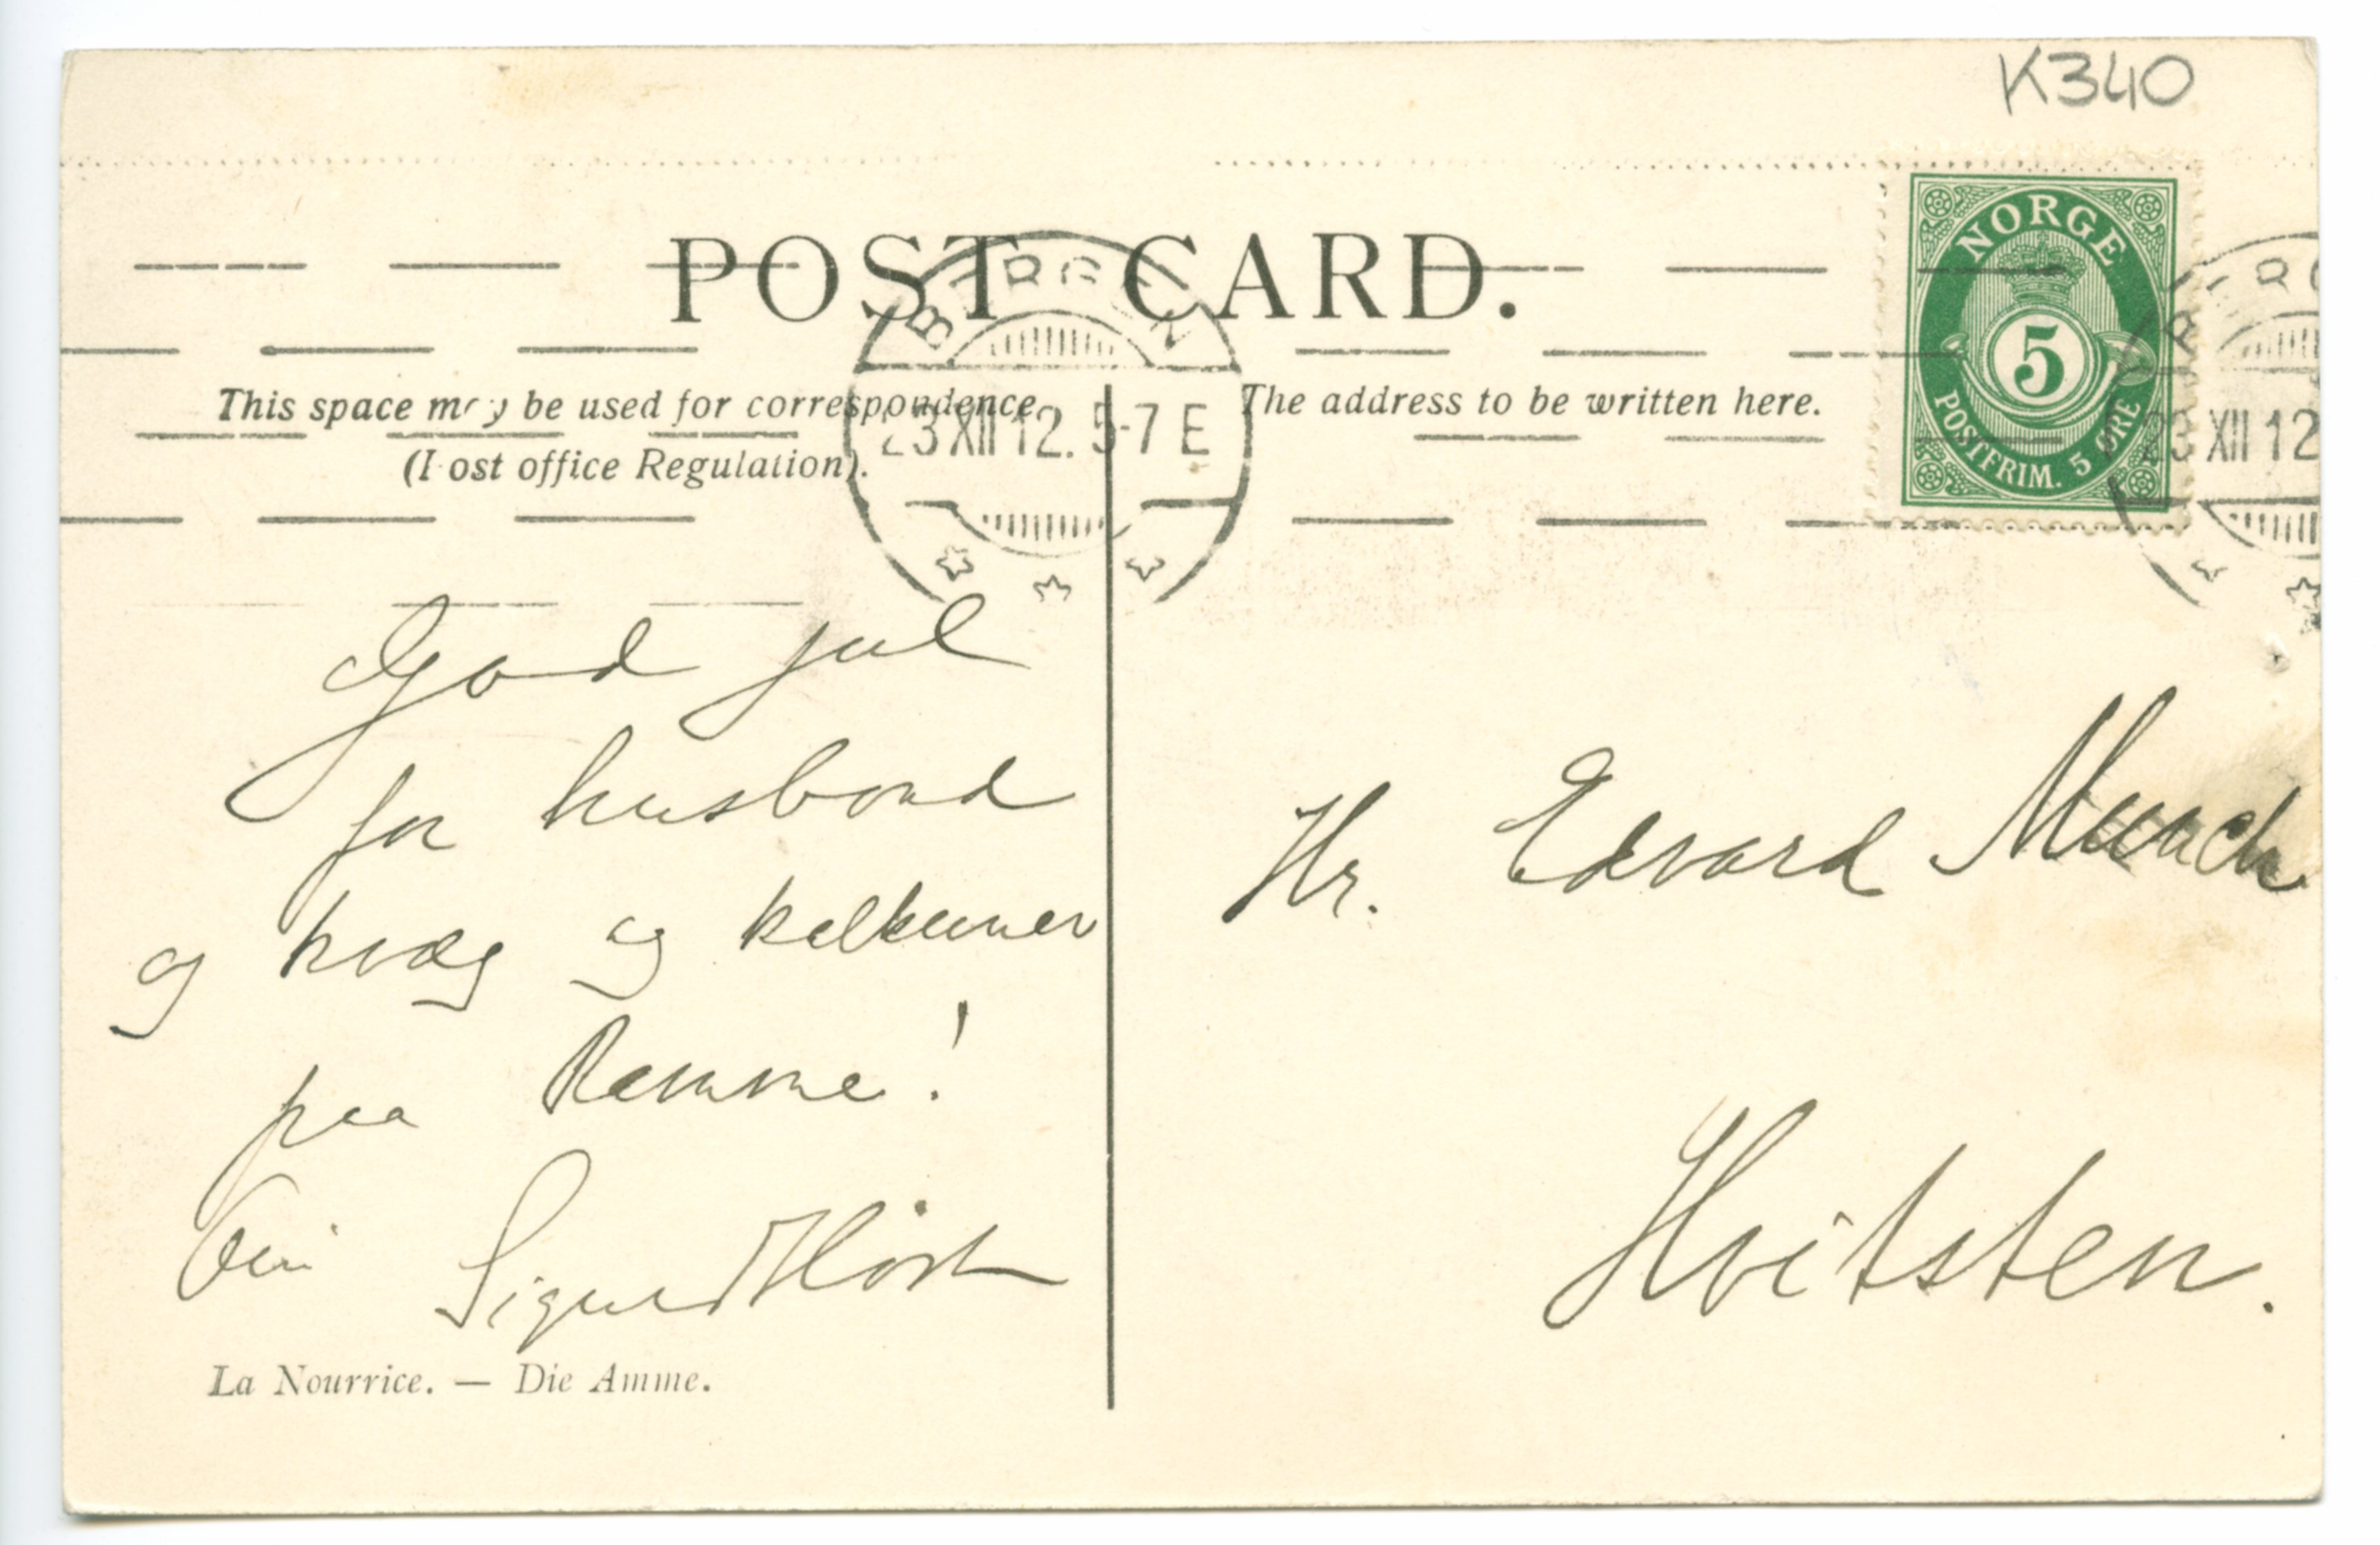 K340
POST CARD.
NORGE
5
POSTFRIM. 5 ØRE
BERGEN
23 XII 12. 5-7 E
23 XII 12
This space may be used for correspondence
(Post office Regulation).
The address to be written here.
God jul
for husbond
og kvæg og kalkuner
paa Ramme!
Din Sigurd Høst
Hr. Edvard Munch
Hvitsten.
La Nourrice. — Die Amme.